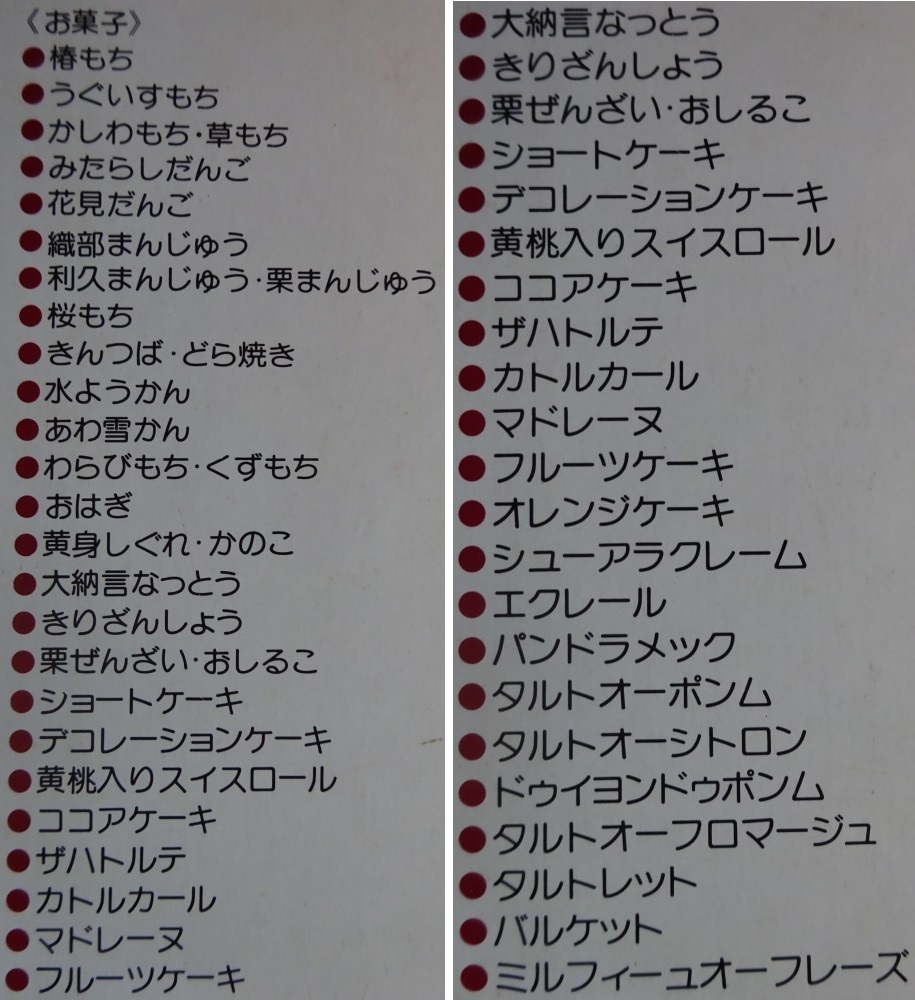 《お菓子》
●椿もち
●うぐいすもち
●かしわもち・草もち
●みたらしだんご
●花見だんご
●織部まんじゅう
●利久まんじゅう・栗まんじゅう
●桜もち
●きんつば・どら焼き
●水ようかん
●あわ雪かん
●わらびもち・くずもち
●おはぎ
●黄身しぐれ・かのこ
●大納言なっとう
●きりざんしょう
●栗ぜんざい・おしるこ
●ショートケーキ
●デコレーションケーキ
●黄桃入りスイスロール
●ココアケーキ
●ザハトルテ
●カトルカール
●マドレーヌ
●フルーツケーキ
●大納言なっとう
●きりざんしょう
●栗ぜんざい・おしるこ
●ショートケーキ
●デコレーションケーキ
●黄桃入りスイスロール
●ココアケーキ
●ザハトルテ
●カトルカール
●マドレーヌ
●フルーツケーキ
●オレンジケーキ
●シューアラクレーム
●エクレール
●パンドラメック
●タルトオーポンム
●タルトオーシトロン
●ドゥイヨンドゥポンム
●タルトオーフロマージュ
●タルトレット
●バルケット
●ミルフィーユオーフレーズ